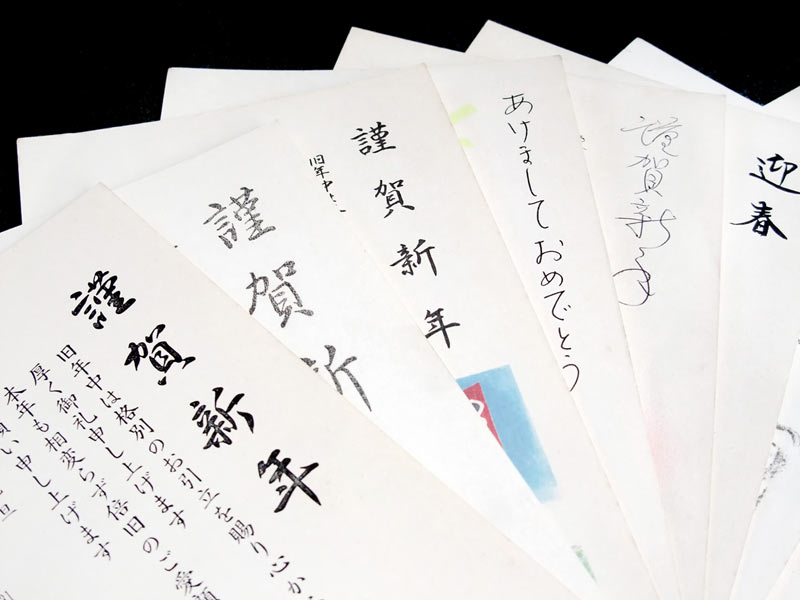 謹賀新年
旧年中は格別のお引立を賜り心か
厚く御礼申し上げます
本年も相変らず倍旧のご愛顧
願い申し上げます
旦
謹賀新
旧年中
謹賀新年
あけましておめでとう
謹賀新年
迎春